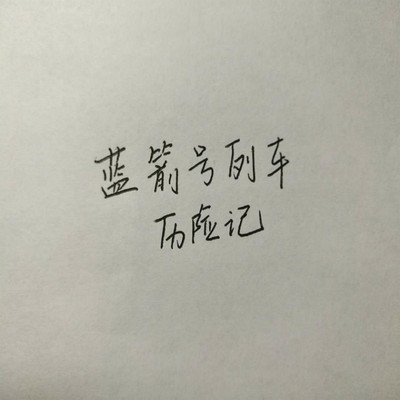 蓝箭号列车
历险记